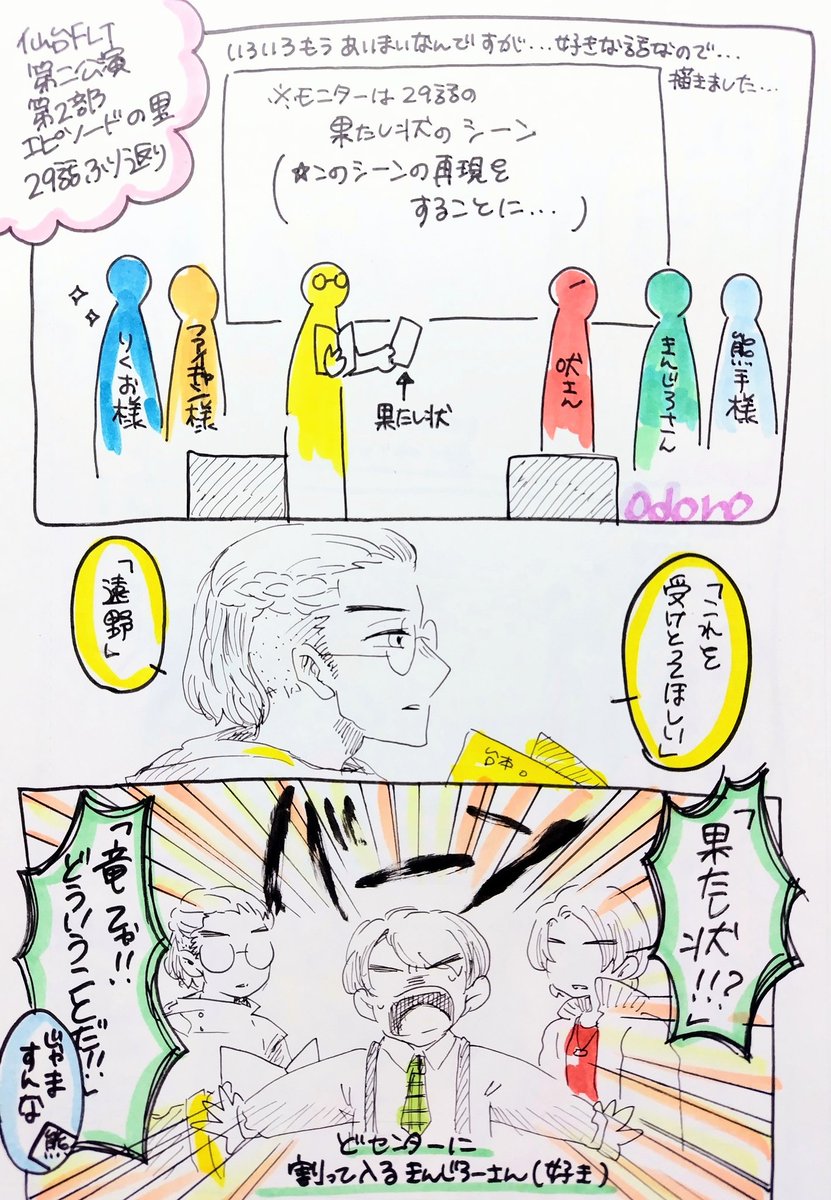 仙台FLT
第二公演
第2部
エピソードの里
29話ふり返り
いろいろもう あいまいなんですが...好きな話なので...
描きました...
※モニターは29話の
果たし状のシーン
(☆このシーンの再現を
することに...)
りくお様
ファイヤン様
↑
果たし状
吠さん
きんじろさん
熊手様
odoro
「これを
受けとってほしい」
「遠野」
台本。
バーン
「果たし状!!?」
「竜てお!!
どういうことだ!!」
じゃま
すんな
熊
どセンターに
割って入るきんじろーさん(好き)